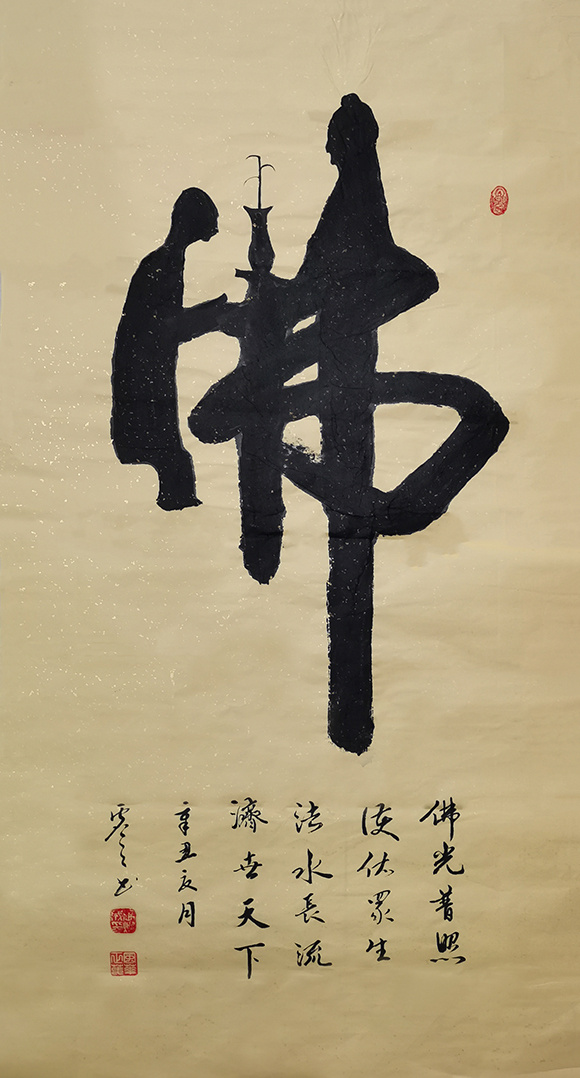 佛
佛光普照
護佑眾生
法水長流
濟世天下
辛丑夏月
书